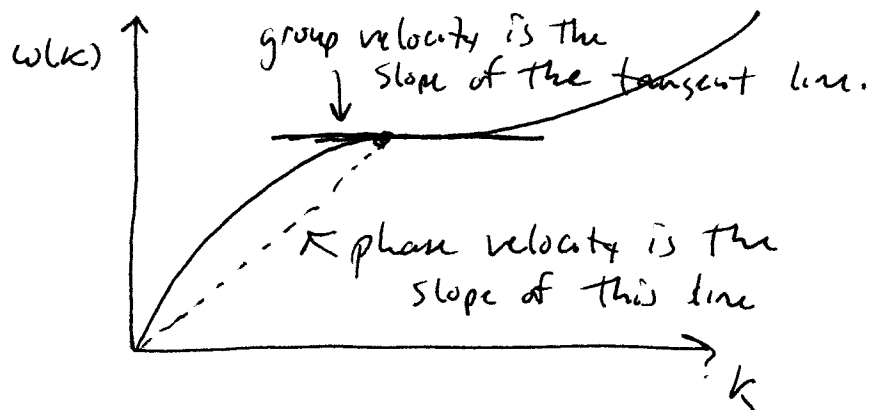 ω(k)
group velocity is the
slope of the tangent line.
phase velocity is the
slope of this line
k